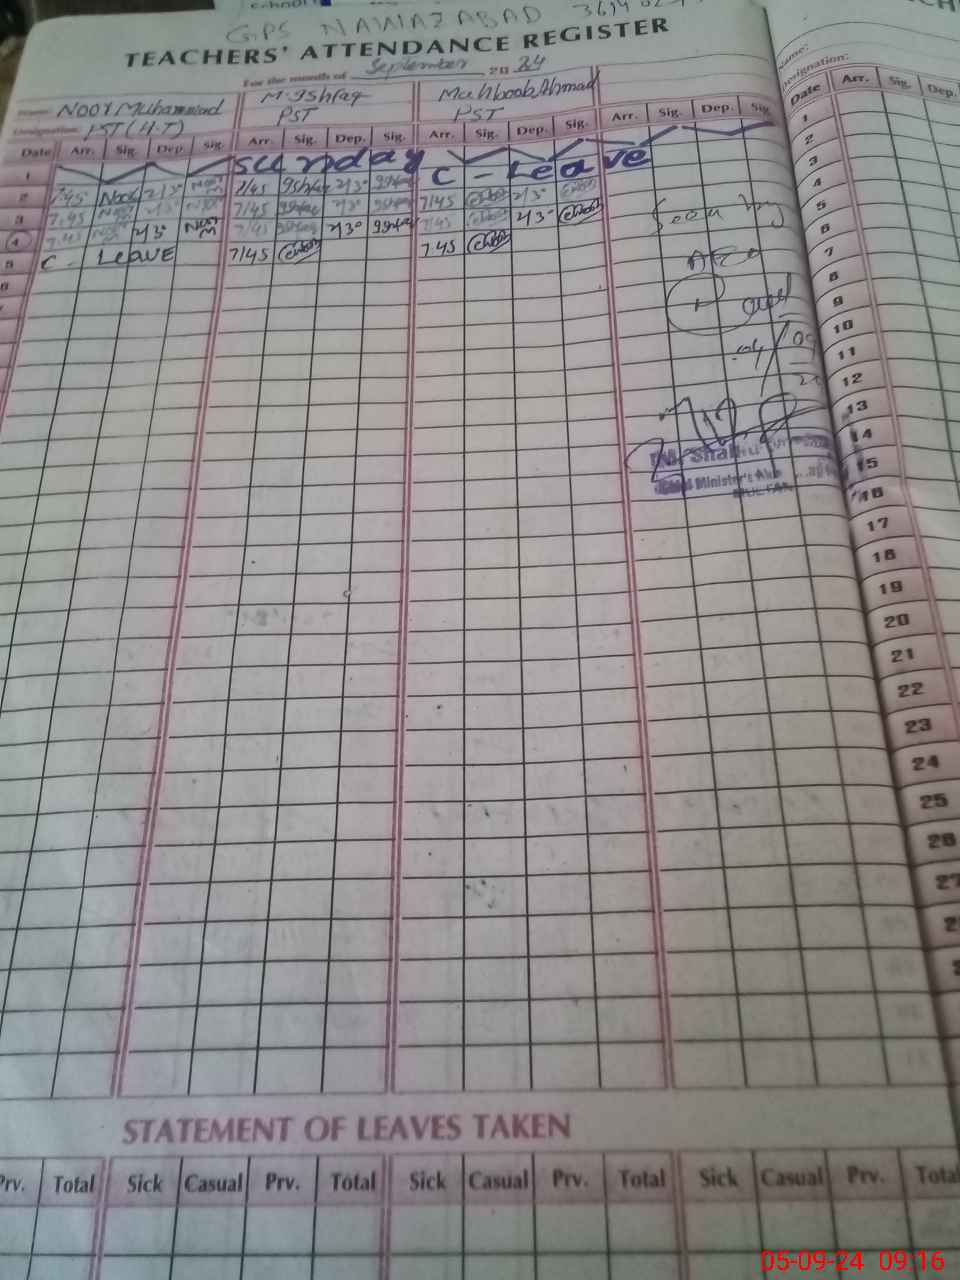 School
GPS NAWAZABAD
TEACHERS' ATTENDANCE REGISTER
For the month of September 2024
Name: NOOR Muhammad M. Ishfaq Mahboob Ahmad
Designation: PST (H.T) PST PST
Date Arr. Sig. Dep. Sig. Arr. Sig. Dep. Sig. Arr. Sig. Dep. Sig. Arr. Sig. Dep. Sig.
1 Sunday
2 7:45 Noor 2/30 Noor M 7/45 Ishfaq 2/30 Ishfaq C - Leave
3 7:45 Noor M 2/30 Noor M 7/45 Ishfaq 2/30 Ishfaq 7/45 2/30
4 7:45 Noor M 2/30 Noor M 7/45 Ishfaq 2/30 Ishfaq 7/45 2/30
5 C - LEAVE 7/45 7 45
6
7
Seen by
AEO
04/09
M. Shahid
Chief Minister's
MULTAN
Name:
Designation:
Date Arr. Sig. Dep.
1
2
3
4
5
6
7
8
9
10
11
12
13
14
15
16
17
18
19
20
21
22
23
24
25
26
27
STATEMENT OF LEAVES TAKEN
Prv. Total Sick Casual Prv. Total Sick Casual Prv. Total Sick Casual Prv. Total
05-09-24 09:16